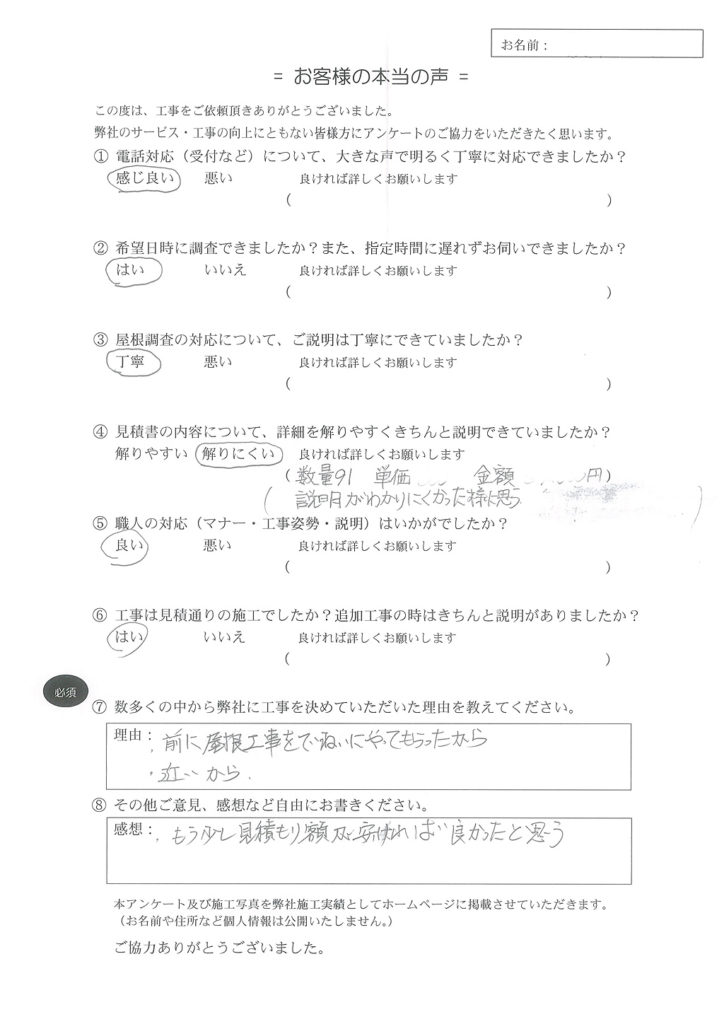 お名前：
= お客様の本当の声 =
この度は、工事をご依頼頂きありがとうございました。
弊社のサービス・工事の向上にともない皆様方にアンケートのご協力をいただきたく思います。
① 電話対応（受付など）について、大きな声で明るく丁寧に対応できましたか？
感じ良い 悪い 良ければ詳しくお願いします
（ ）
② 希望日時に調査できましたか？また、指定時間に遅れずお伺いできましたか？
はい いいえ 良ければ詳しくお願いします
（ ）
③ 屋根調査の対応について、ご説明は丁寧にできていましたか？
丁寧 悪い 良ければ詳しくお願いします
（ ）
④ 見積書の内容について、詳細を解りやすくきちんと説明できていましたか？
解りやすい 解りにくい 良ければ詳しくお願いします
（数量91 単価 金額 円）
（ 説明がわかりにくかった様に思う ）
⑤ 職人の対応（マナー・工事姿勢・説明）はいかがでしたか？
良い 悪い 良ければ詳しくお願いします
（ ）
⑥ 工事は見積通りの施工でしたか？追加工事の時はきちんと説明がありましたか？
はい いいえ 良ければ詳しくお願いします
（ ）
必須
⑦ 数多くの中から弊社に工事を決めていただいた理由を教えてください。
理由：・前に屋根工事をていねいにやってもらったから
・近いから．
⑧ その他ご意見、感想など自由にお書きください。
感想：・もう少し見積もり額が安ければ良かったと思う
本アンケート及び施工写真を弊社施工実績としてホームページに掲載させていただきます。
（お名前や住所など個人情報は公開いたしません。）
ご協力ありがとうございました。